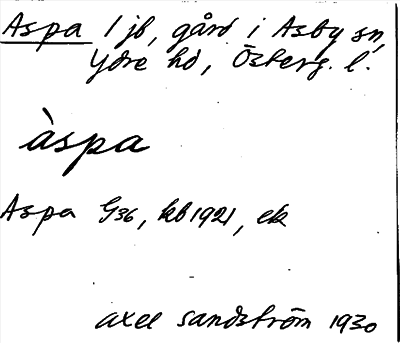 Aspa 1 jb, gård i Asby sn,
Ydre hd, Österg. l.
àspa
Aspa G36, kb 1921, ek
Axel Sandström 1930